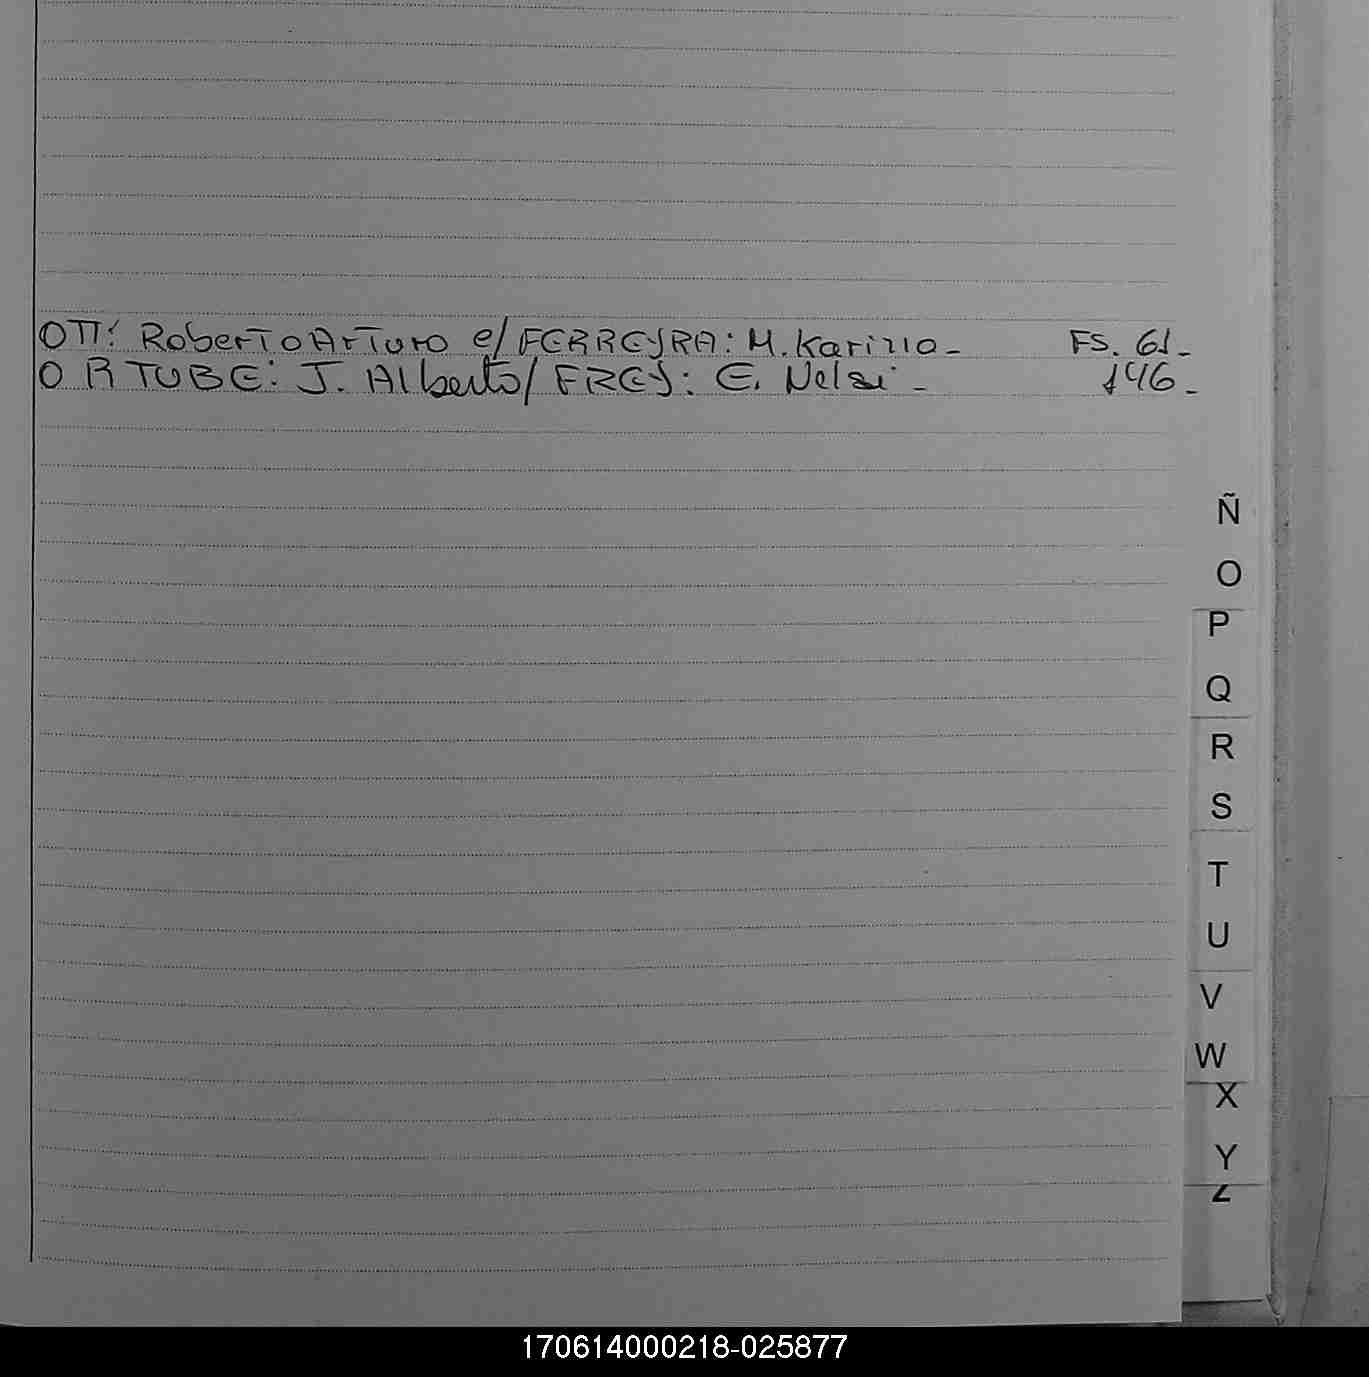 OTT: Roberto Arturo e/ FERREYRA: M. Karina - FS. 61 -
ORTUBE: J. Alberto / FREY: E. Nelsi - 146 -
Ñ
O
P
Q
R
S
T
U
V
W
X
Y
Z
170614000218-025877